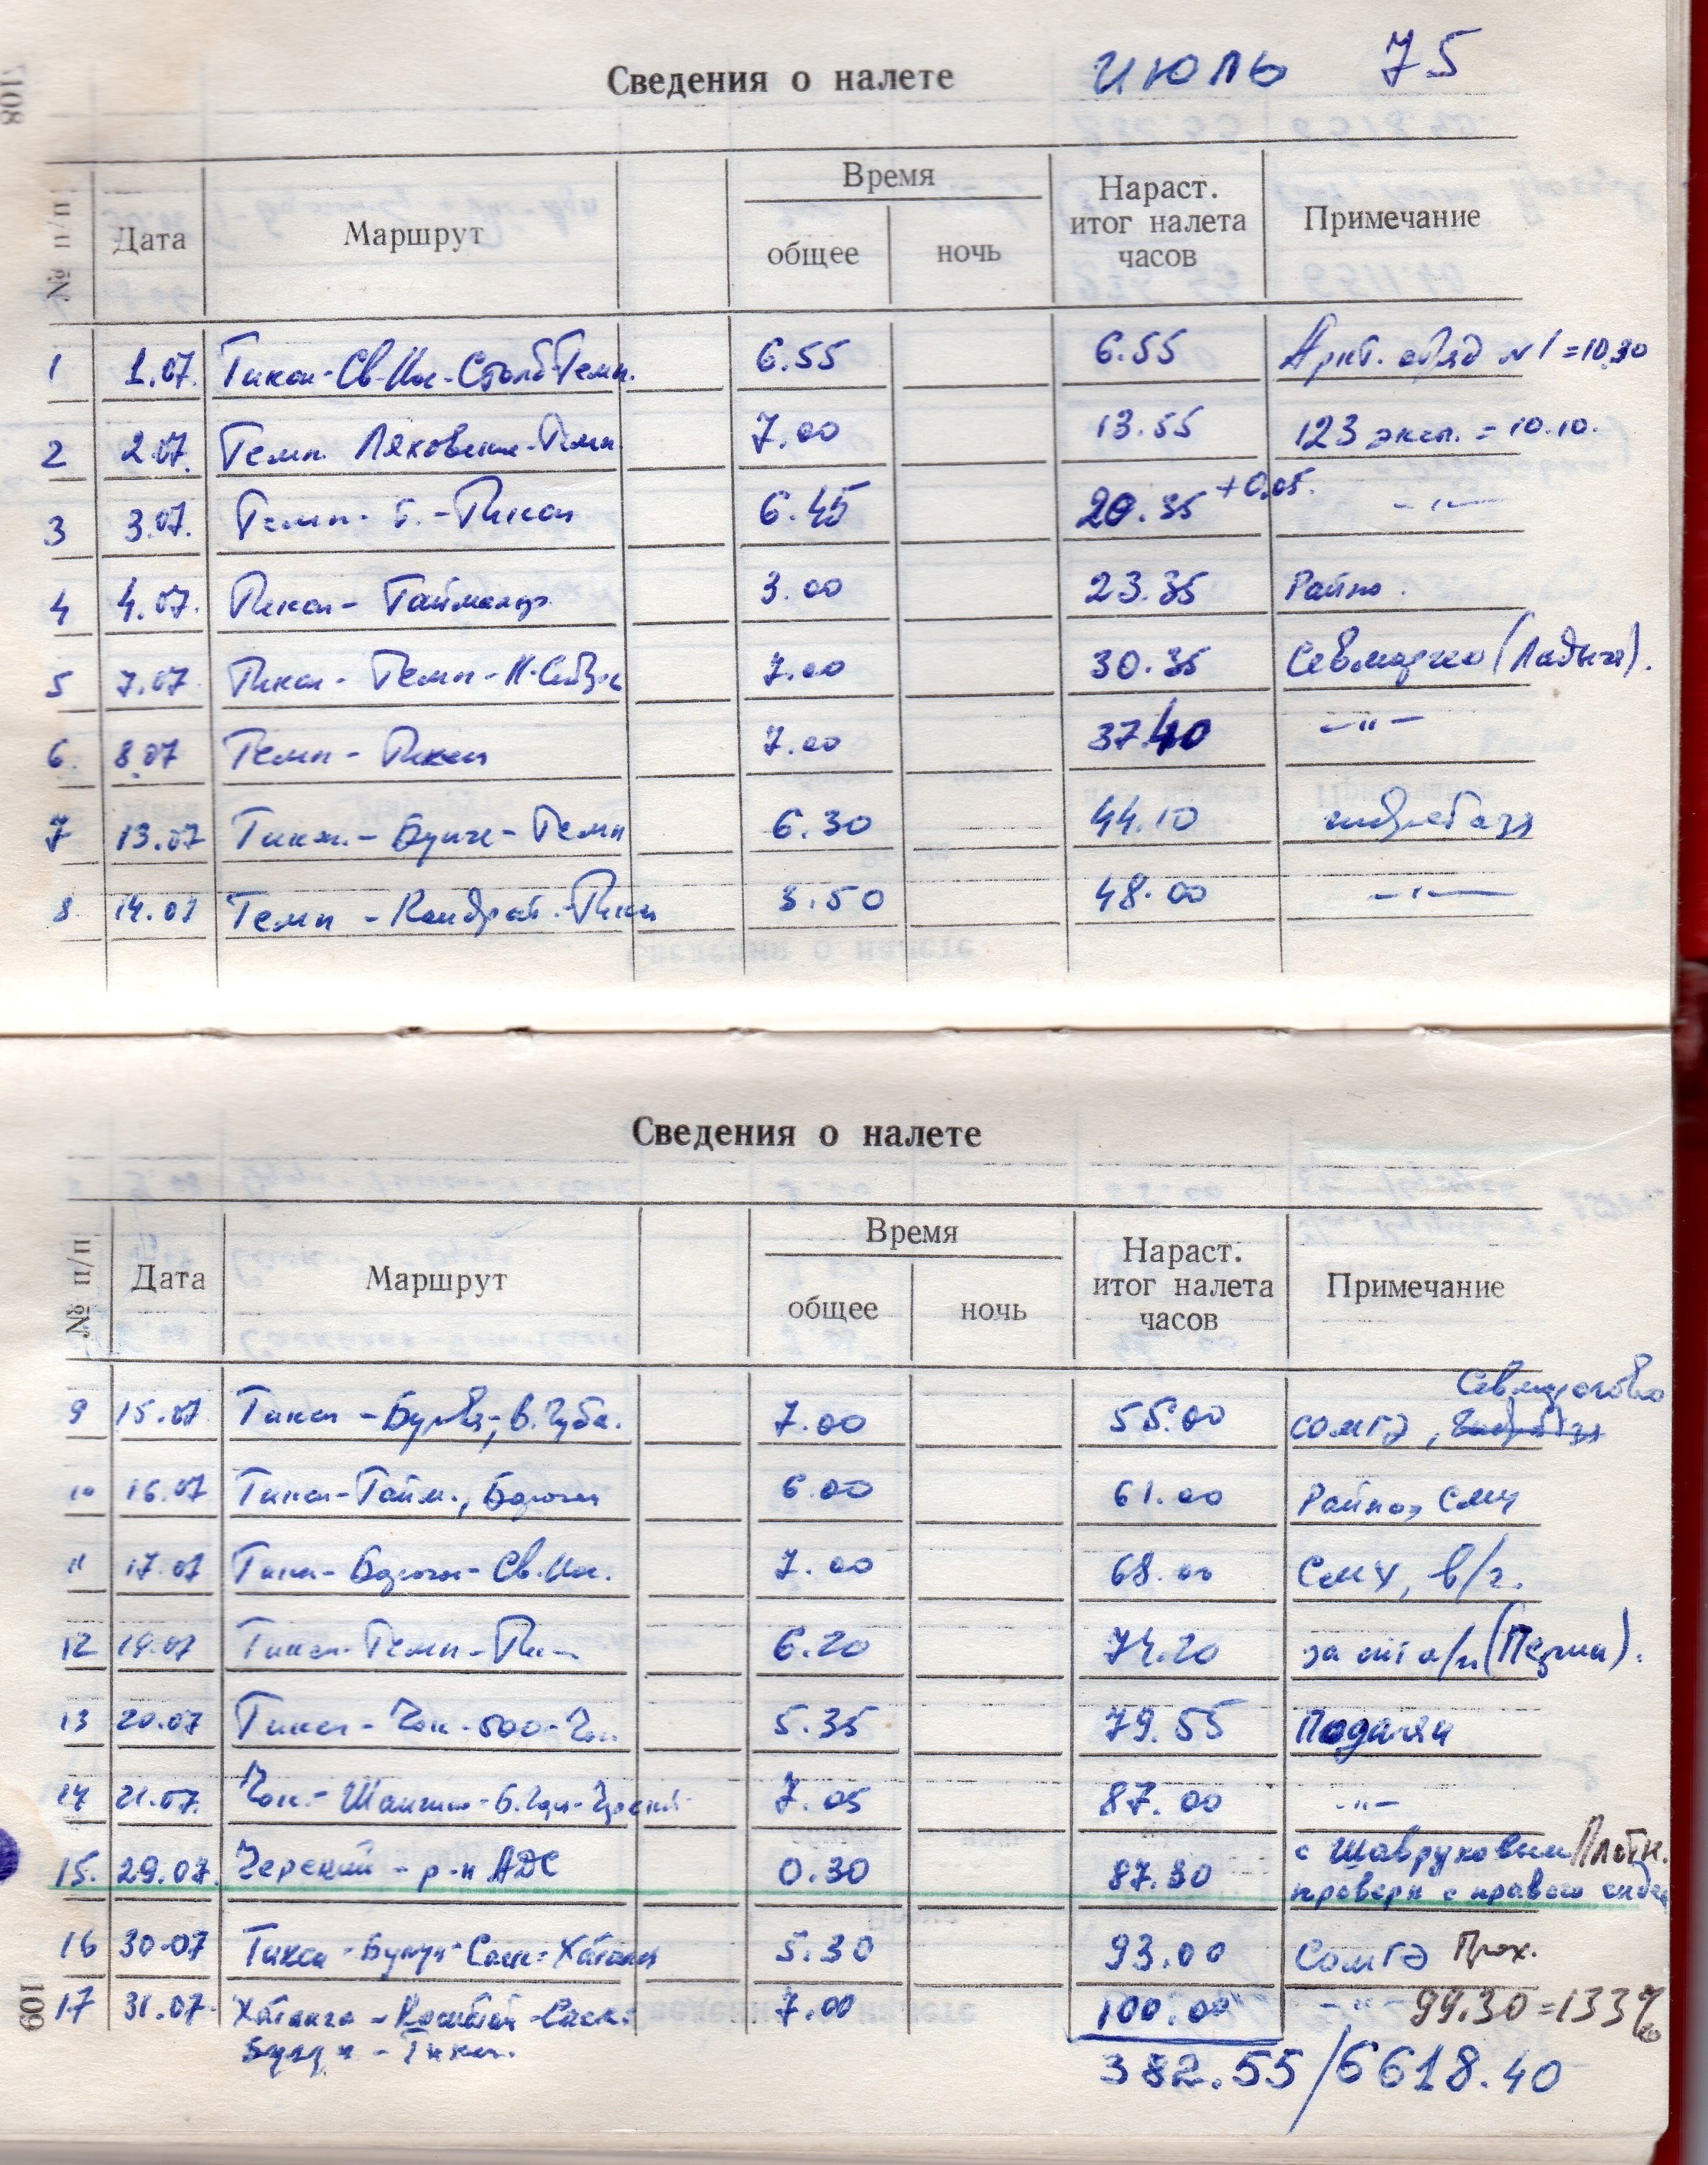 108
Сведения о налете июль 75
№ п/п Дата Маршрут Время Нараст. итог налета часов Примечание
общее ночь
1 1.07. Тикси-Св.Нос-Столб-Темп. 6.55 6.55 Аркт. отряд №1=10.30
2 2.07. Темп Ляховские-Темп 7.00 13.55 123 эксп. = 10.10.
3 3.07. Темп- Б.-Тикси 6.45 20.35 +0.05. -"-
4 4.07. Тикси- Таймылыр 3.00 23.35 Райпо.
5 7.07 Тикси- Темп-Н.Сибирь 7.00 30.35 Севморгео (Ладыга).
6. 8.07 Темп - Тикси 7.00 37.40 -"-
7 13.07 Тикси.- Бунге- Темп 6.30 44.10 гидробаза
8 14.07 Темп -Кондрат.-Тикси 3.50 48.00 -"-
Сведения о налете
№ п/п Дата Маршрут Время Нараст. итог налета часов Примечание
общее ночь
Севморгео
9 15.07 Тикси -Буор-, в. Губа. 7.00 55.00 СОМГЭ,
10 16.07 Тикси-Тайм., Борогон 6.00 61.00 Райпо, СМУ
11 17.07 Тикси- Борогон- Св.Нос. 7.00 68.00 СМУ, в/г.
12 19.07 Тикси-Темп- 6.20 74.20 за счет а/п
13 20.07 Тикси- Чок.-500-Чок. 5.35 79.55 Подгаля
14 21.07. Чок.- 7.05 87.00 -"-
15. 29.07. Черский - р-н АДС 0.30 87.30 с Шавруковым Плотн.
проверк с правого сиден
16 30.07 Тикси -Булун- Саск- Хатанга 5.30 93.00 СОМГЭ Прох.
17 31.07. Хатанга - -Саск. 7.00 100.00 -"- 99.30=133%
Булун - Тикси.
382.55/6618.40
109